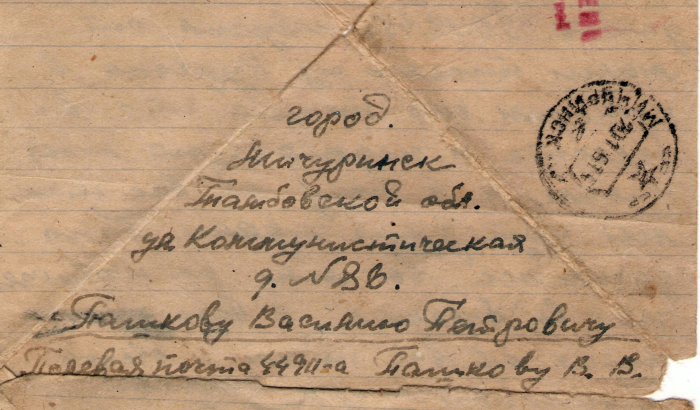 город.
Мичуринск
Тамбовской обл.
ул Коммунистическая
д. №86.
Пашкову Василию Петровичу
Полевая почта 44911-а Пашкову В. В.
МИЧУРИНСК